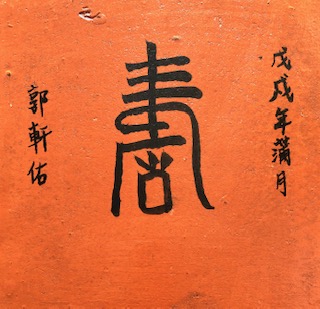 戊戌年蒲月
壽
郭軒佑